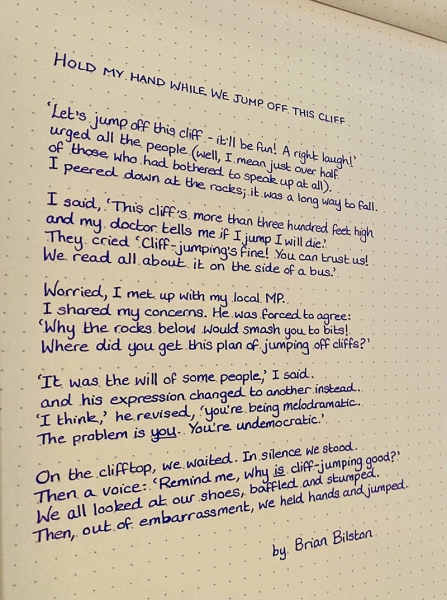 HOLD MY HAND WHILE WE JUMP OFF THIS CLIFF
'Let's jump off this cliff - it'll be fun! A right laugh!'
urged all the people (well, I mean just over half
of those who had bothered to speak up at all).
I peered down at the rocks; it was a long way to fall.
I said, 'This cliff's more than three hundred feet high
and my doctor tells me if I jump I will die.'
They cried 'Cliff-jumping's fine! You can trust us!
We read all about it on the side of a bus.'
Worried, I met up with my local MP.
I shared my concerns. He was forced to agree:
'Why the rocks below would smash you to bits!
Where did you get this plan of jumping off cliffs?'
'It was the will of some people,' I said.
and his expression changed to another instead.
'I think,' he revised, 'you're being melodramatic.
The problem is you. You're undemocratic.'
On the clifftop, we waited. In silence we stood.
Then a voice: 'Remind me, why is cliff-jumping good?'
We all looked at our shoes, baffled and stumped.
Then, out of embarrassment, we held hands and jumped.
by Brian Bilston